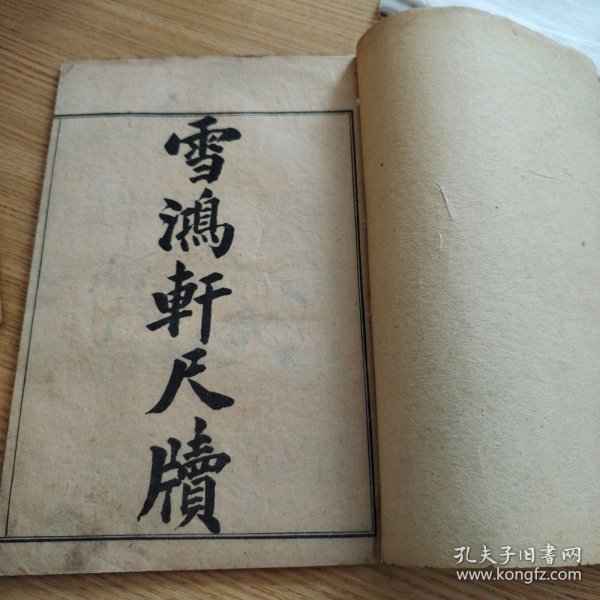 雪鴻軒尺牘
孔夫子旧書网
www.kongfz.com